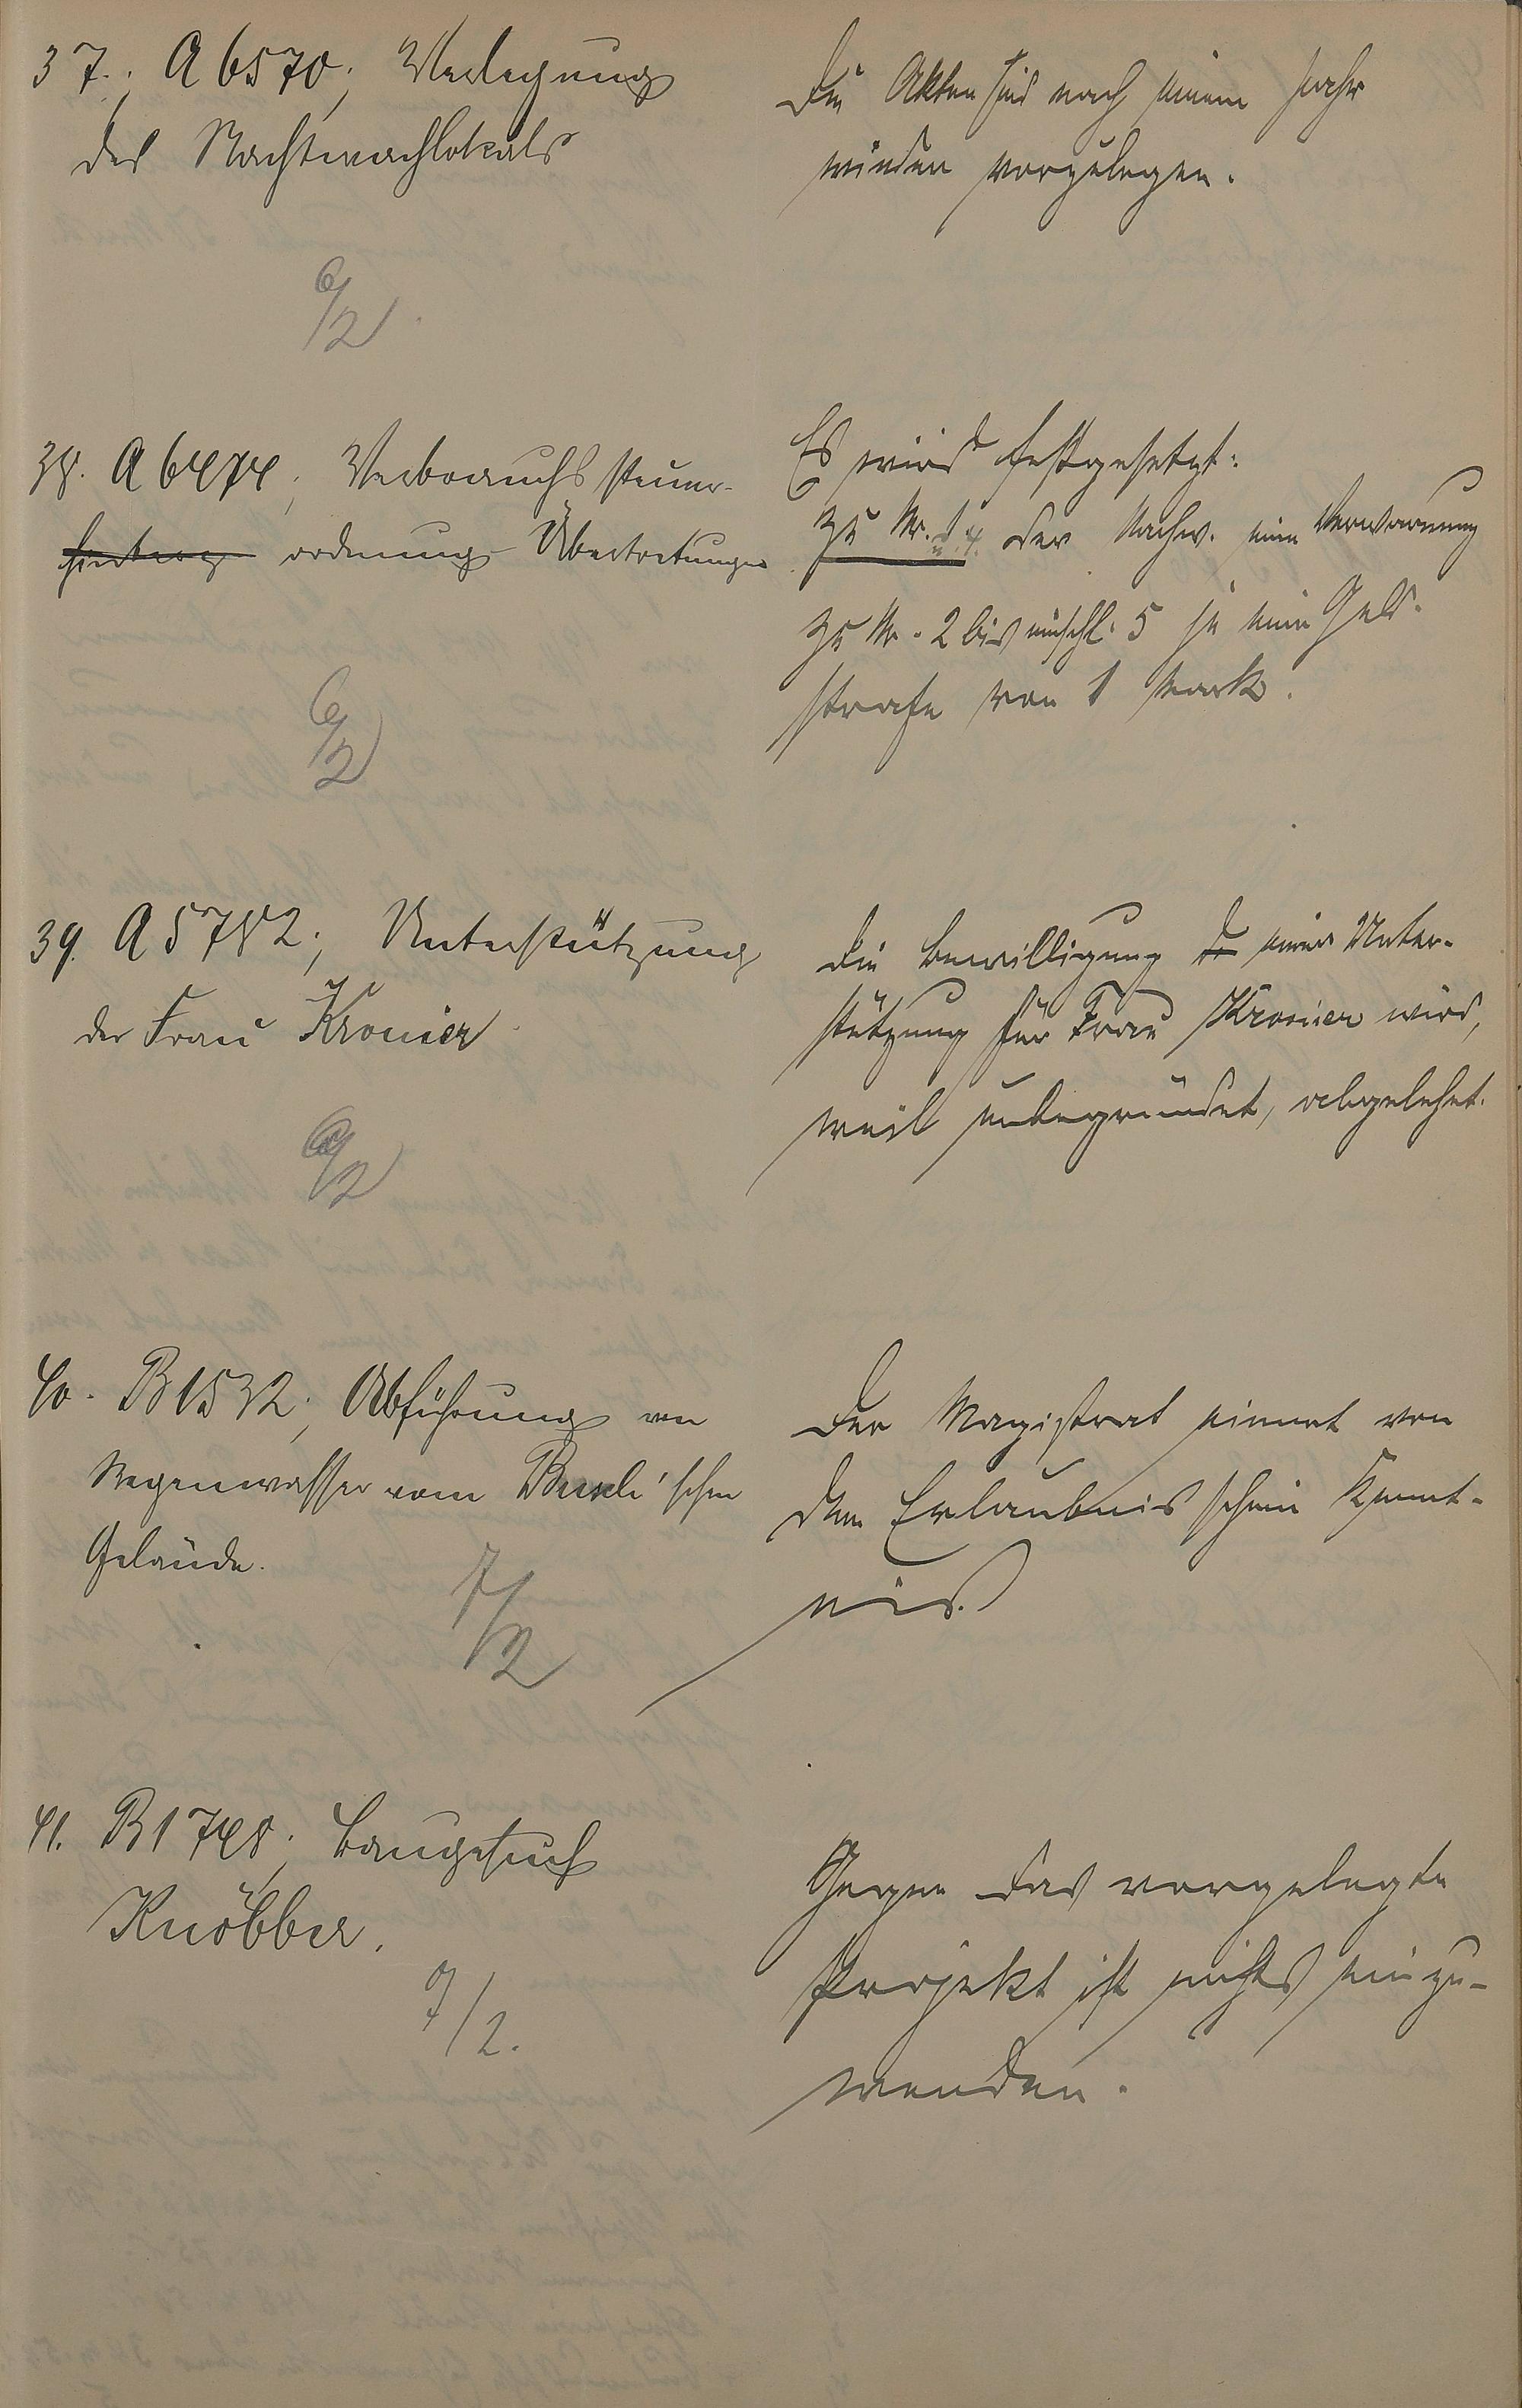 37. A 6570; Verlegung
des Nachtwachlokals
Die Akten sind nach einem Jahr
wieder vorzulegen.
6/2
38. A 6474; Verbrauchssteuer-
ordnung Übertretungen
Es wird festgesetzt:
zu Nr. 1 der Nachw. eine Verwarnung
zu Nr. 2 bis einschl. 5 je eine Geld-
strafe von 1 Mark.
6/2
39. A 5782; Unterstützung
der Frau Kronier
Die Bewilligung einer Unter-
stützung für Frau Kronier wird,
weil unbegründet, abgelehnt.
6/2
40. B 1532; Abführung von
Regenwasser vom Busch'schen
Gelände.
Der Magistrat nimmt von
dem Erlaubnisschein Kennt-
nis.
7/2
41. B 1748; Baugesuch
Knöbber.
Gegen das vorgelegte
Projekt ist nichts einzu-
wenden.
7/2.